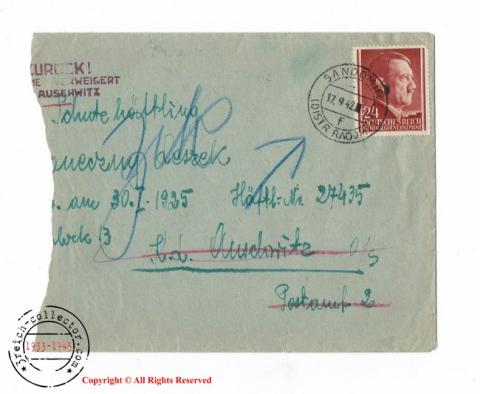 ZURÜCK!
VERWEIGERT
AUSCHWITZ
SANDOMIERZ
17.9.42
f
(DISTR. RADOM)
24
DEUTSCHES REICH
GENERALGOUVERNEMENT
Schutzhäftling
Leszek
. am 30.I.1925 Häftl.-Nr. 27435
Block 13
K.L. Auschwitz O/S
Postamt 2
3reich-collector.com
1933-1945
Copyright © All Rights Reserved